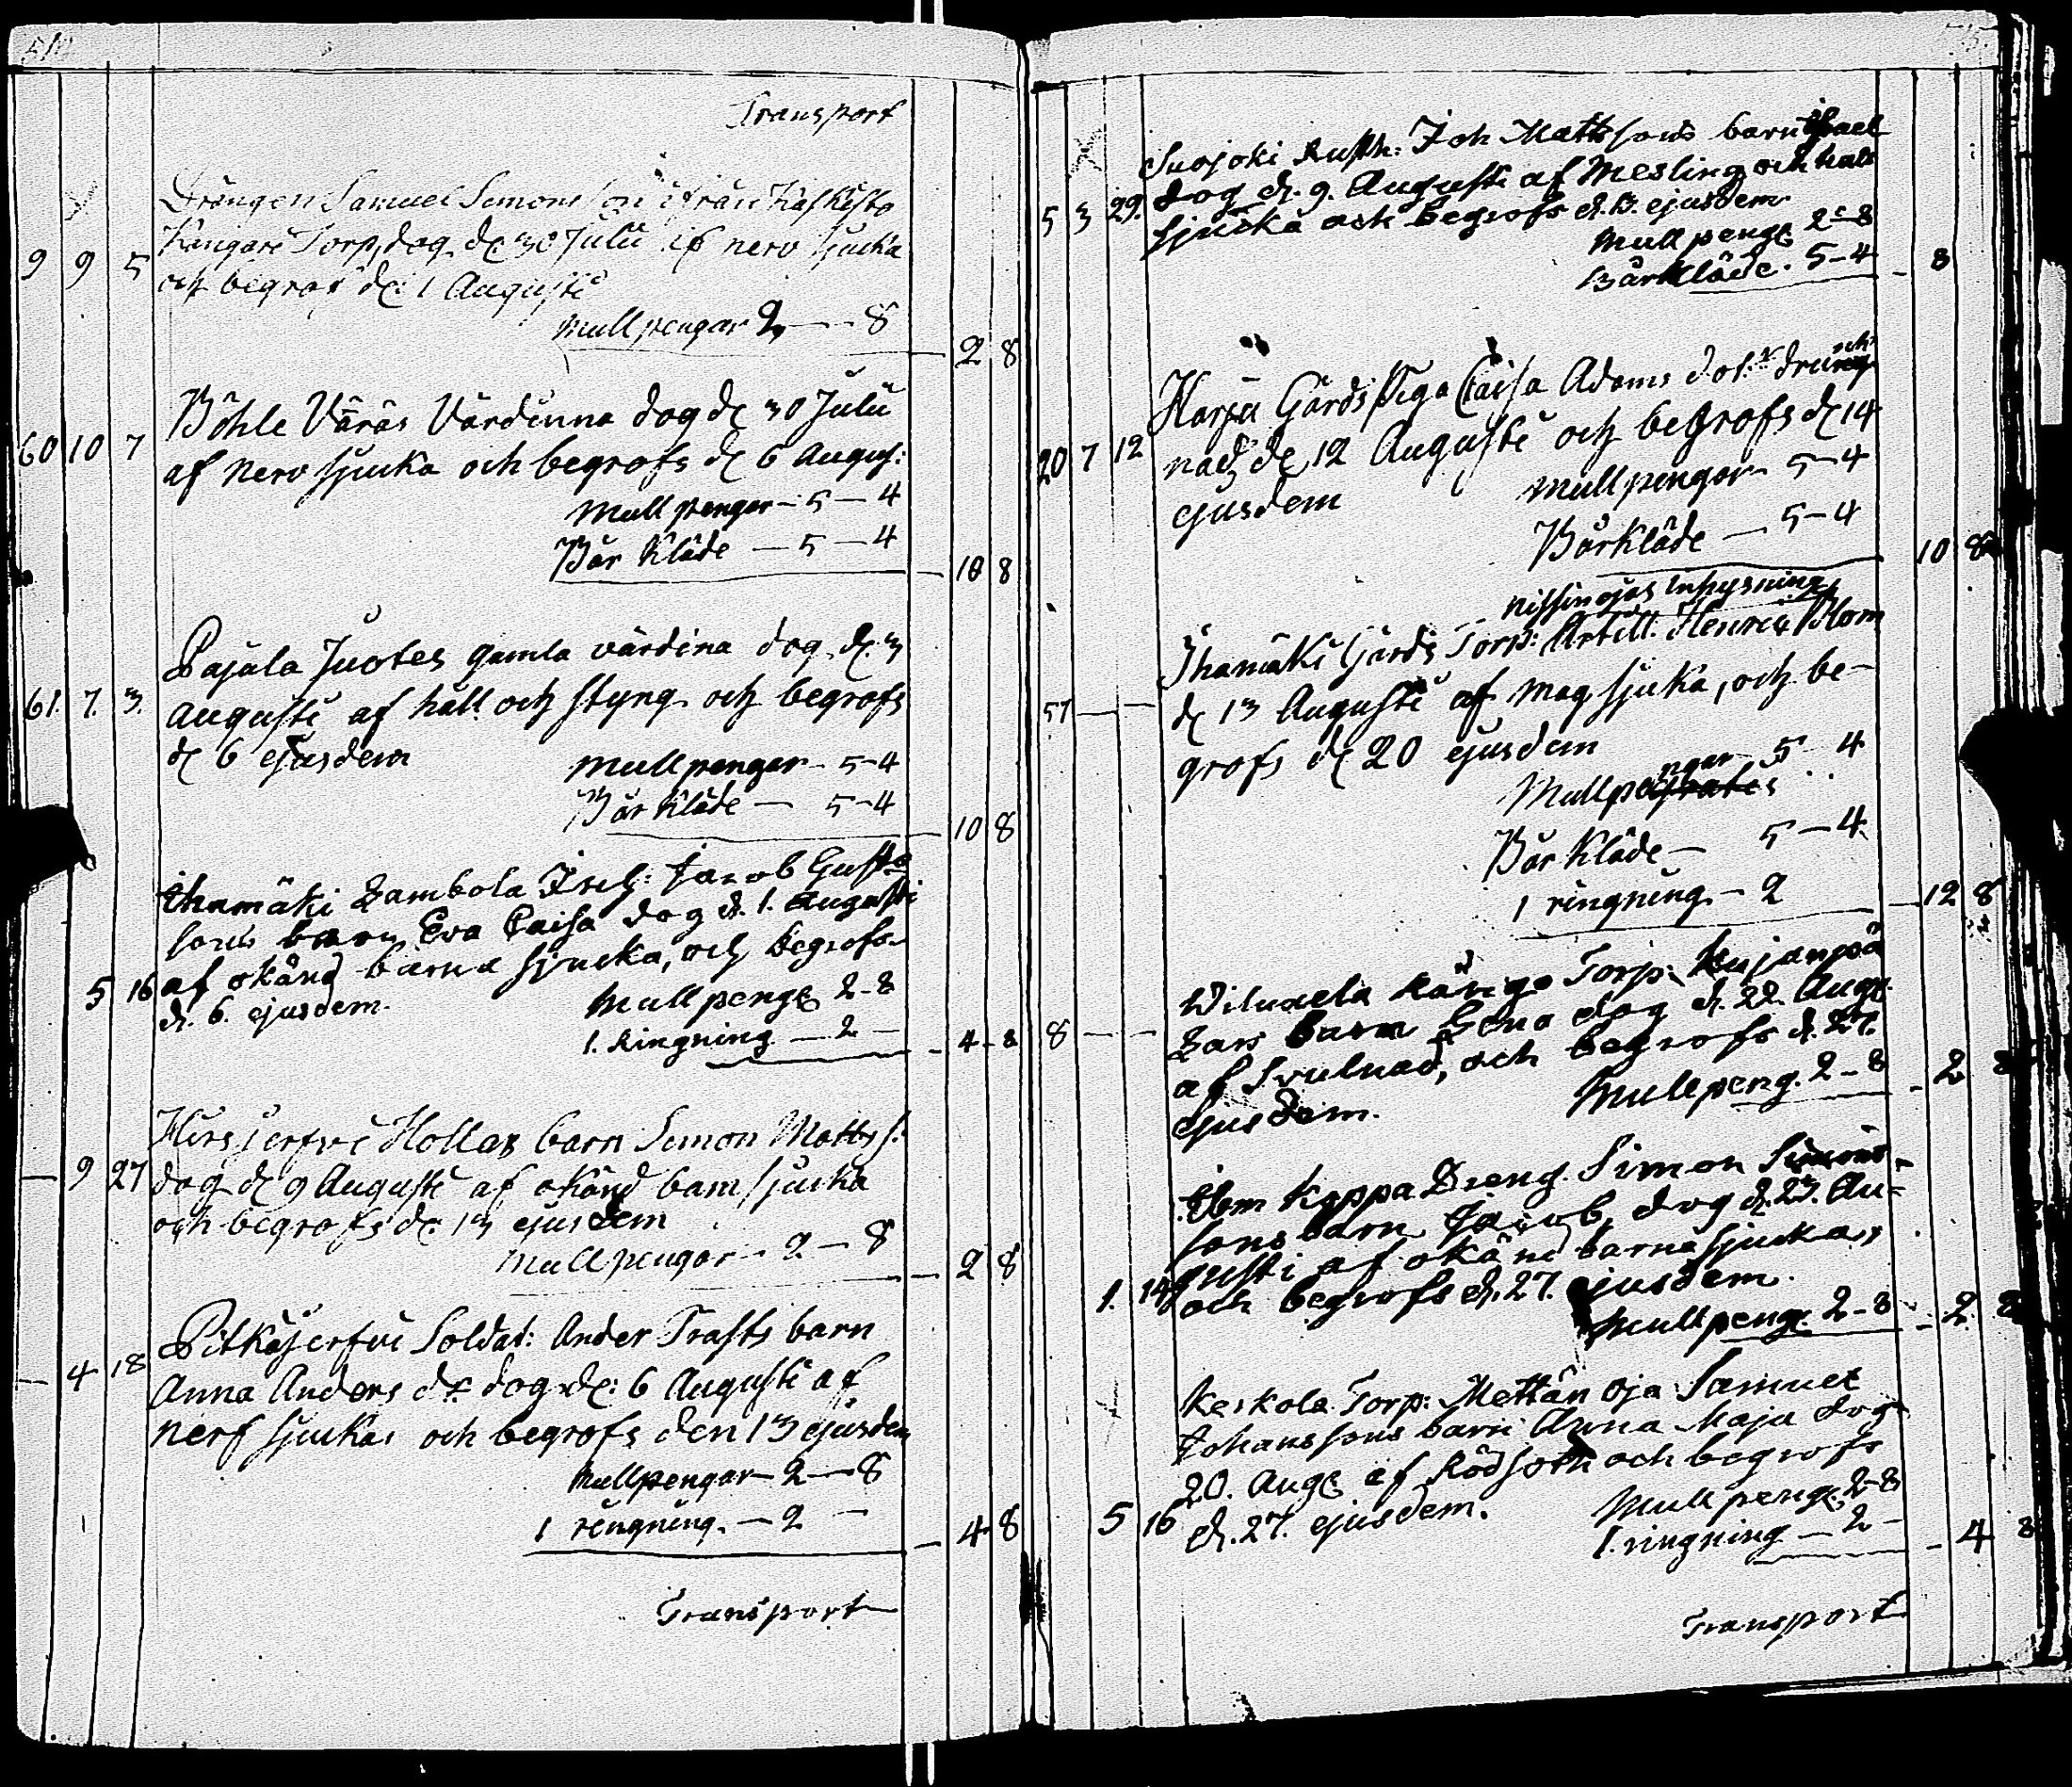 Transport
Drängen Samuel Simonsson ifrån Kaskisto
9 9 5 Kangare Torp, dog de 30 Julii af nerv sjucka
och begrafs de: 1 Augusti
Mullpengar 2 — 8
2 8
Böhle Väräs Värdinna dog de 30 Julii
60 10 7 af nerv sjucka och begrofs de 6 Augus:
Mullpengar — 5 — 4
Bår Kläde — 5 — 4
10 8
Pajula Juotes gamla värdina dog d. 3
61. 7. 3. Augusti af håll och styng och begrofs
de 6 ejusdem
Mullpengar — 5-4
Bår Kläde — 5-4
10 8
Ihamäki Jacob Gustafs
sons barn Eva Caisa dog d. 1. Augusti
5 16 af okänd barna sjucka, och begrofs
d. 6. ejusdem.
Mullpeng 2-8
1. Ringning — 2 —
4-8
Hirsjerfvi Hollas barn Simon Matts s:
— 9 27 dog de 9 Augusti af okänd barn sjucka
och begrofs de: 13 ejusdem
Mullpengar — 2 — 8
2 8
Pitkäjerfvi Soldat: Ander Trasts barn
— 4 18 Anna Anders dr dog de: 6 Augusti af
nerf sjucka och begrofs den 13 ejusdem
Mullpengar — 2 — 8
1 ringning. — 2 —
4 8
Transport
Suojoki Rusth: Joh Mattssons barn
5 3 29. dog d. 9. Augusti af Mesling och hals
sjucka och begrofs d. 13. ejusdem.
Mullpeng 2-8
Bårkläde. 5-4
8
Harju Gårds Piga Caisa Adams dot:r drunck
20 7 12 nad de 12 Augusti och begrofs de 14
ejusdem
Mullpengar — 5-4
Bårkläde — 5-4
10 8
Nissinojas Inhysning
Ihamäki Gårds Torp: Artill. Henric Blom
57 — — de 13 Augusti af mag sjuka, och be-
grofs de 20 ejusdem
Mullpengar 5 4
Bår Kläde — 5 — 4.
1 ringning — 2
12 8
Torp: Kujanpä
8 — — Lars barn Lena dog d. 22. Aug.
af Svulnad, och begrofs d. 27.
ejusdem.
Mullpeng. 2-8
2 8
Koppa Dreng. Simon Simons-
sons barn Jacob, dog d. 23. Au-
gusti af okänd barna sjucka,
1. 14 och begrofs d. 27. ejusdem.
Mullpeng. 2-8
2. 8
Keskola Torp: Mettän oja Samuel
Johanssons barn Anna Maja dog
20. Aug af Rödsoth och begrofs
5 16 d. 27. ejusdem.
Mullpeng. 2-8
1. ringning — 2 —
4 8
Transport